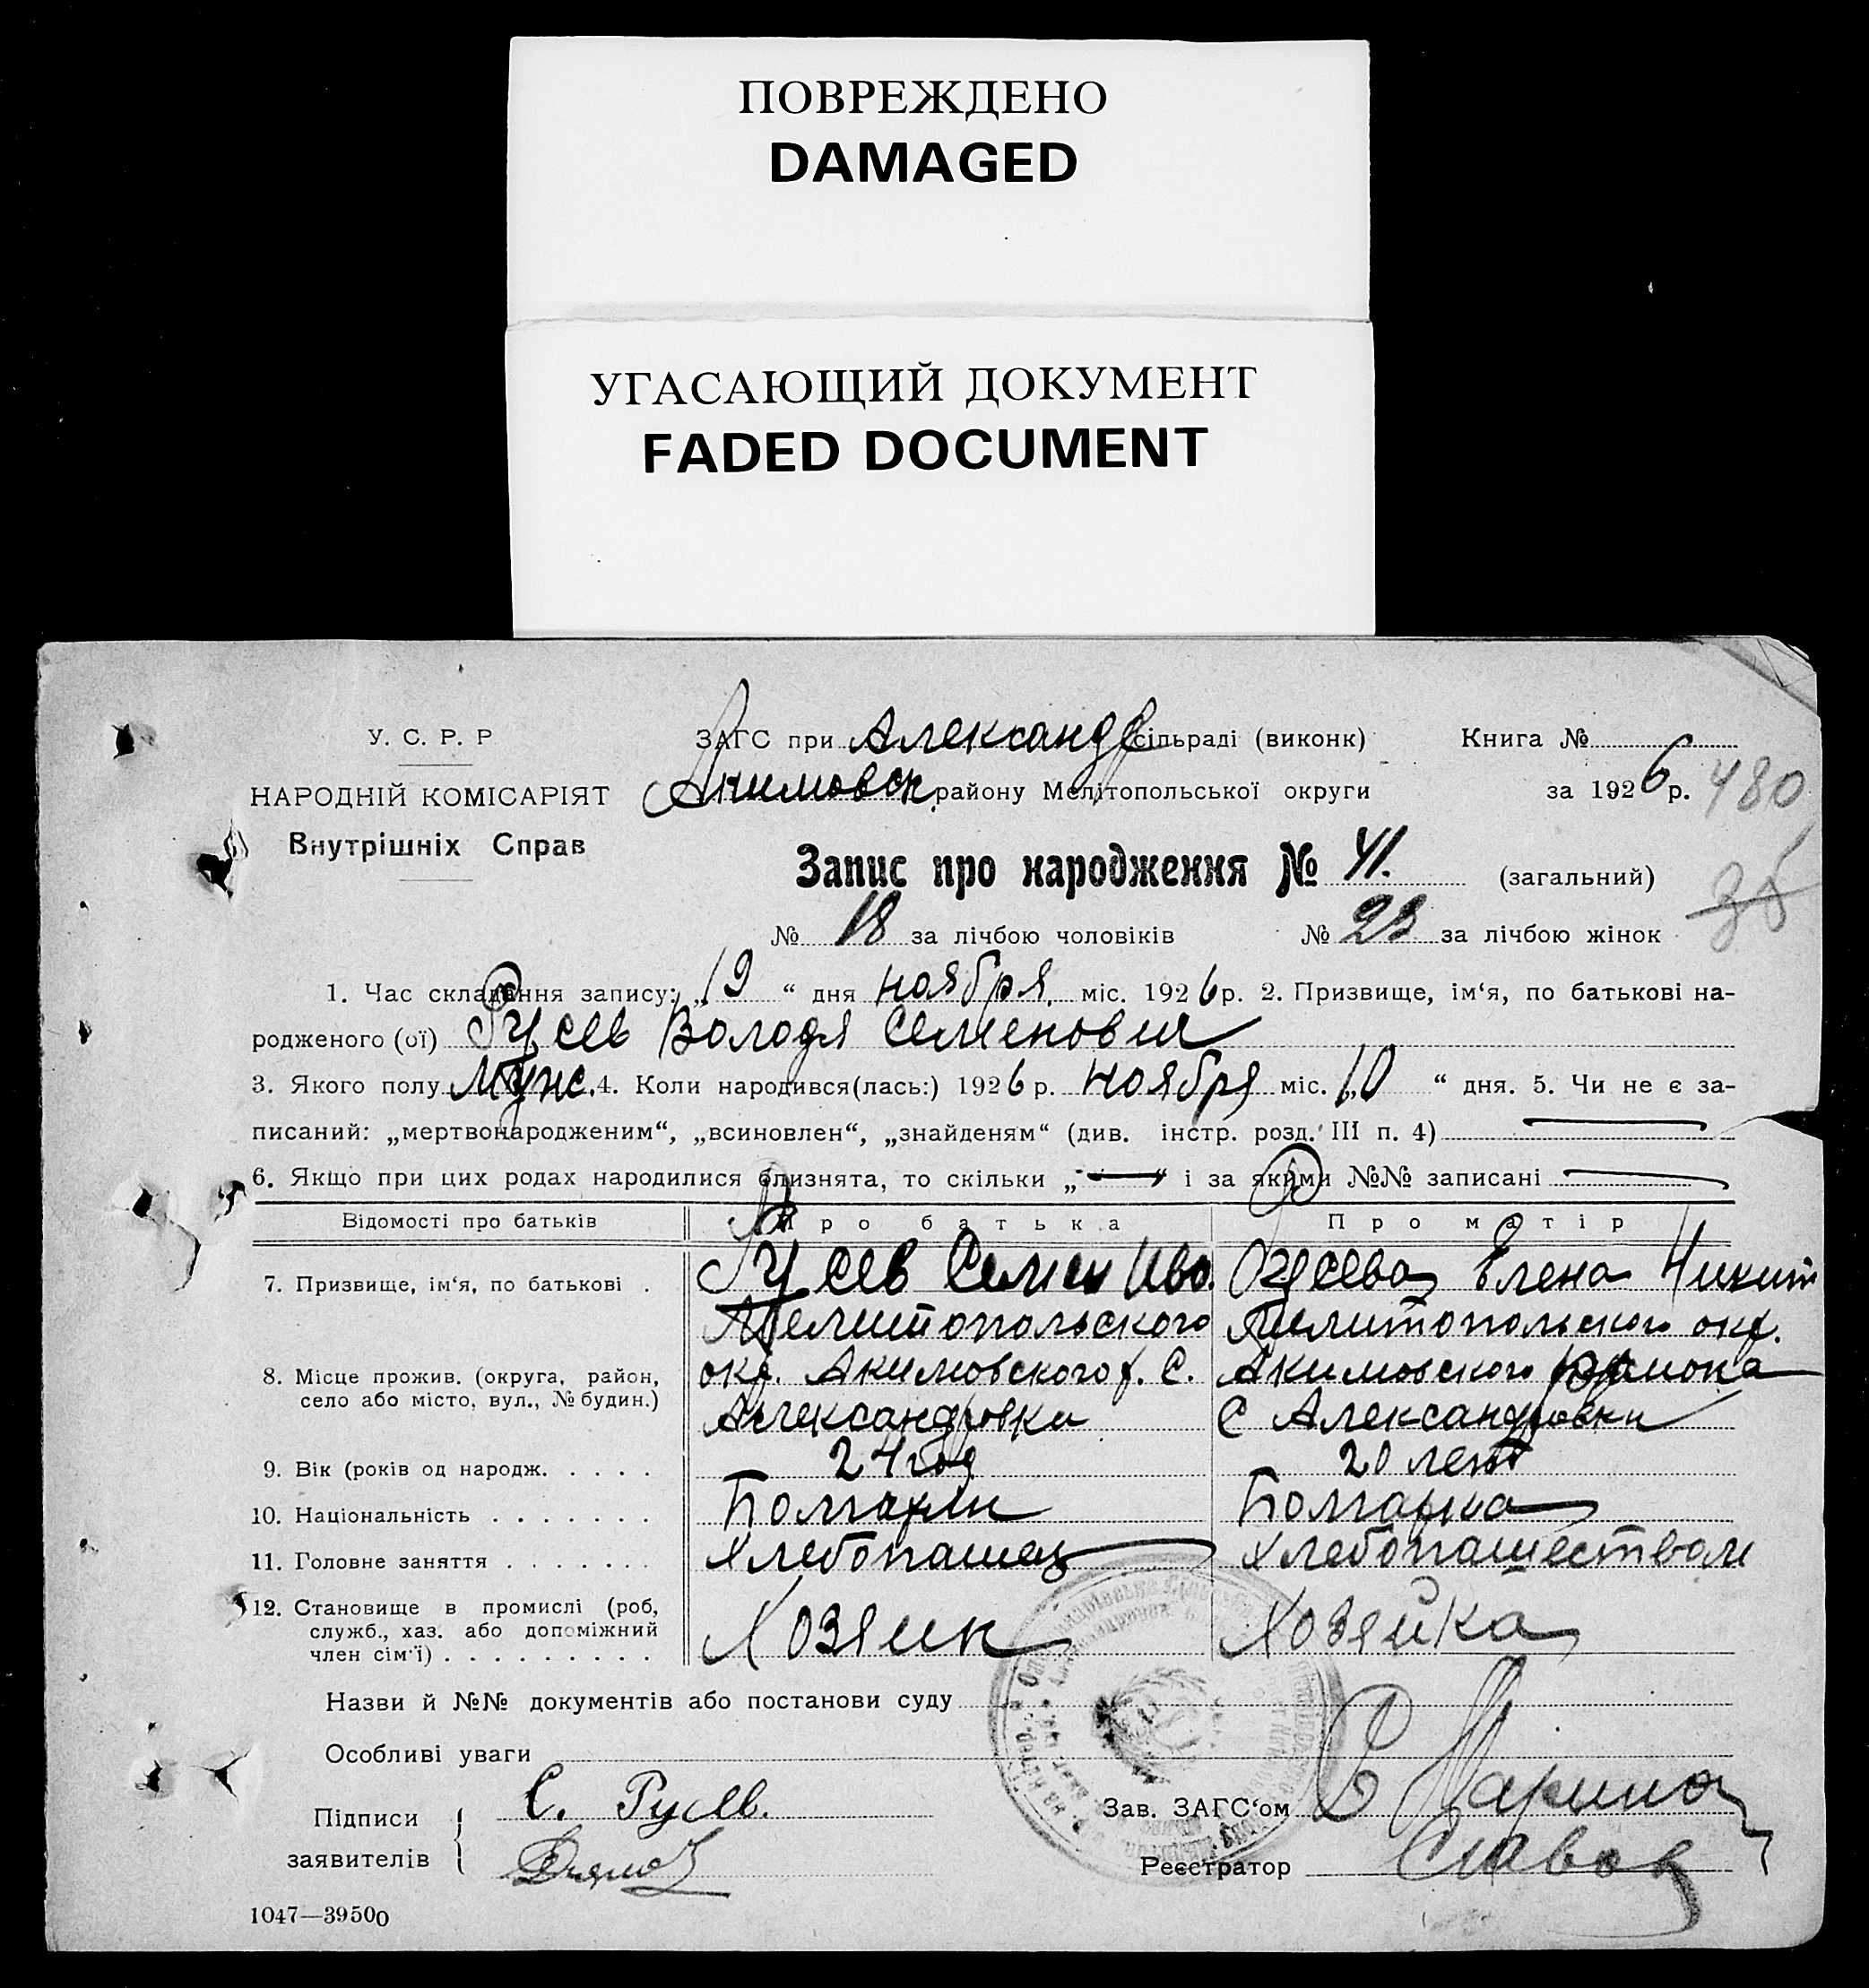 ПОВРЕЖДЕНО
DAMAGED
УГАСАЮЩИЙ ДОКУМЕНТ
FADED DOCUMENT
У. С. Р. Р
НАРОДНІЙ КОМІСАРІЯТ
Внутрішніх Справ
ЗАГС при Александр сільраді (виконк) Книга №
Акимовск району Мелітопольської округи за 1926 р. 480
Запис про народження № 41. (загальний) 35
№ 18 за лічбою чоловіків № 23 за лічбою жінок
1. Час складання запису: „19“ дня ноября міс. 1926 р. 2. Призвище, ім‘я, по батькові на-
родженого (ої) Русев Володя Семенович
3. Якого полу Муж. 4. Коли народився(лась:) 1926 р. ноября міс. „10“ дня. 5. Чи не є за-
писаний: „мертвонародженим“, „всиновлен“, „знайденям“ (див. інстр. розд. III п. 4) —
6. Якщо при цих родах народилися близнята, то скільки „—“ і за якими №№ записані —
Відомості про батьків Про батька Про матір
7. Призвище, ім‘я, по батькові . Русев Семен Ива. Русева Елена Никит
8. Місце прожив. (округа, район, село або місто, вул., № будин.) Мелитопольского окр. Акимовского р. С. Александровки Мелитопольского окр. Акимовского района С Александровки
9. Вік (років од народж. . . . . 24 год 20 лет
10. Національність . . . . . . . Болгарин Болгарка
11. Головне заняття . . . . . . . Хлебопашец Хлебопашеством
12. Становище в промислі (роб, служб., хаз. або допоміжний член сім‘ї) . . . . . . . . . Хозяин Хозяйка
Назви й №№ документів або постанови суду
Особливі уваги
Підписи заявителів С. Русев.
Зав. ЗАГС‘ом
Реєстратор Славов
1047—39500